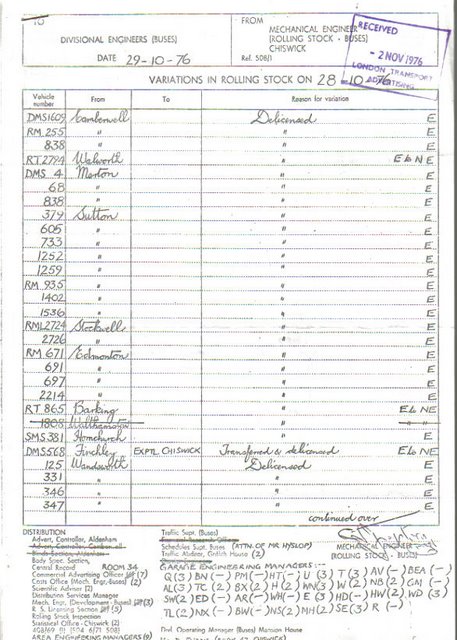 TO
DIVISIONAL ENGINEERS (BUSES)
DATE 29-10-76
FROM
MECHANICAL ENGINEER
(ROLLING STOCK - BUSES)
CHISWICK
Ref. 508/1
RECEIVED
- 2 NOV 1976
LONDON TRANSPORT
ADVERTISING
VARIATIONS IN ROLLING STOCK ON 28-10-76
Vehicle number From To Reason for variation
DMS1609 Camberwell Delicensed E
RM 255 " " E
838 " " E
RT2794 Walworth " E & NE
DMS 4 Merton " E
68 " " E
838 " " E
379 Sutton " E
605 " " E
733 " " E
1252 " " E
1259 " " E
RM 935 " " E
1402 " " E
1536 " " E
RML2724 Stockwell " E
2726 " " E
RM 671 Edmonton " E
691 " " E
697 " " E
2214 " " E
RT 865 Barking " E & NE
1808 Walthamstow "
SMS 381 Hornchurch " E
DMS568 Finchley EXPTL CHISWICK Transferred & delicensed E & NE
125 Wandsworth Delicensed E
331 " " E
346 " " E
347 " " E
continued over
MECHANICAL ENGINEER
(ROLLING STOCK - BUSES)
DISTRIBUTION
Advert. Controller, Aldenham
Body Spec. Section,
Central Record ROOM 34
Commercial Advertising Officer (7)
Costs Office (Mech. Engr.-Buses) (2)
Scientific Adviser (2)
Distribution Services Manager
Mech. Engr. (Development - Buses) (3)
R. S. Licensing Section (5)
Stationery Inspection
Statistical Office - Chiswick (2)
Traffic Supt. (Buses)
Schedules Supt. Buses (ATTN. OF MR HYSLOP)
Traffic Advisor, Griffith House (2)
GARAGE ENGINEERING MANAGERS:-
Q(3) BN(-) PM(-) HT(-) U(3) T(3) AV(-) BEA(-)
Rolling Stock Inspection
Civil Operating Manager (Buses) Mansion House
AREA ENGINEERING MANAGERS(9)